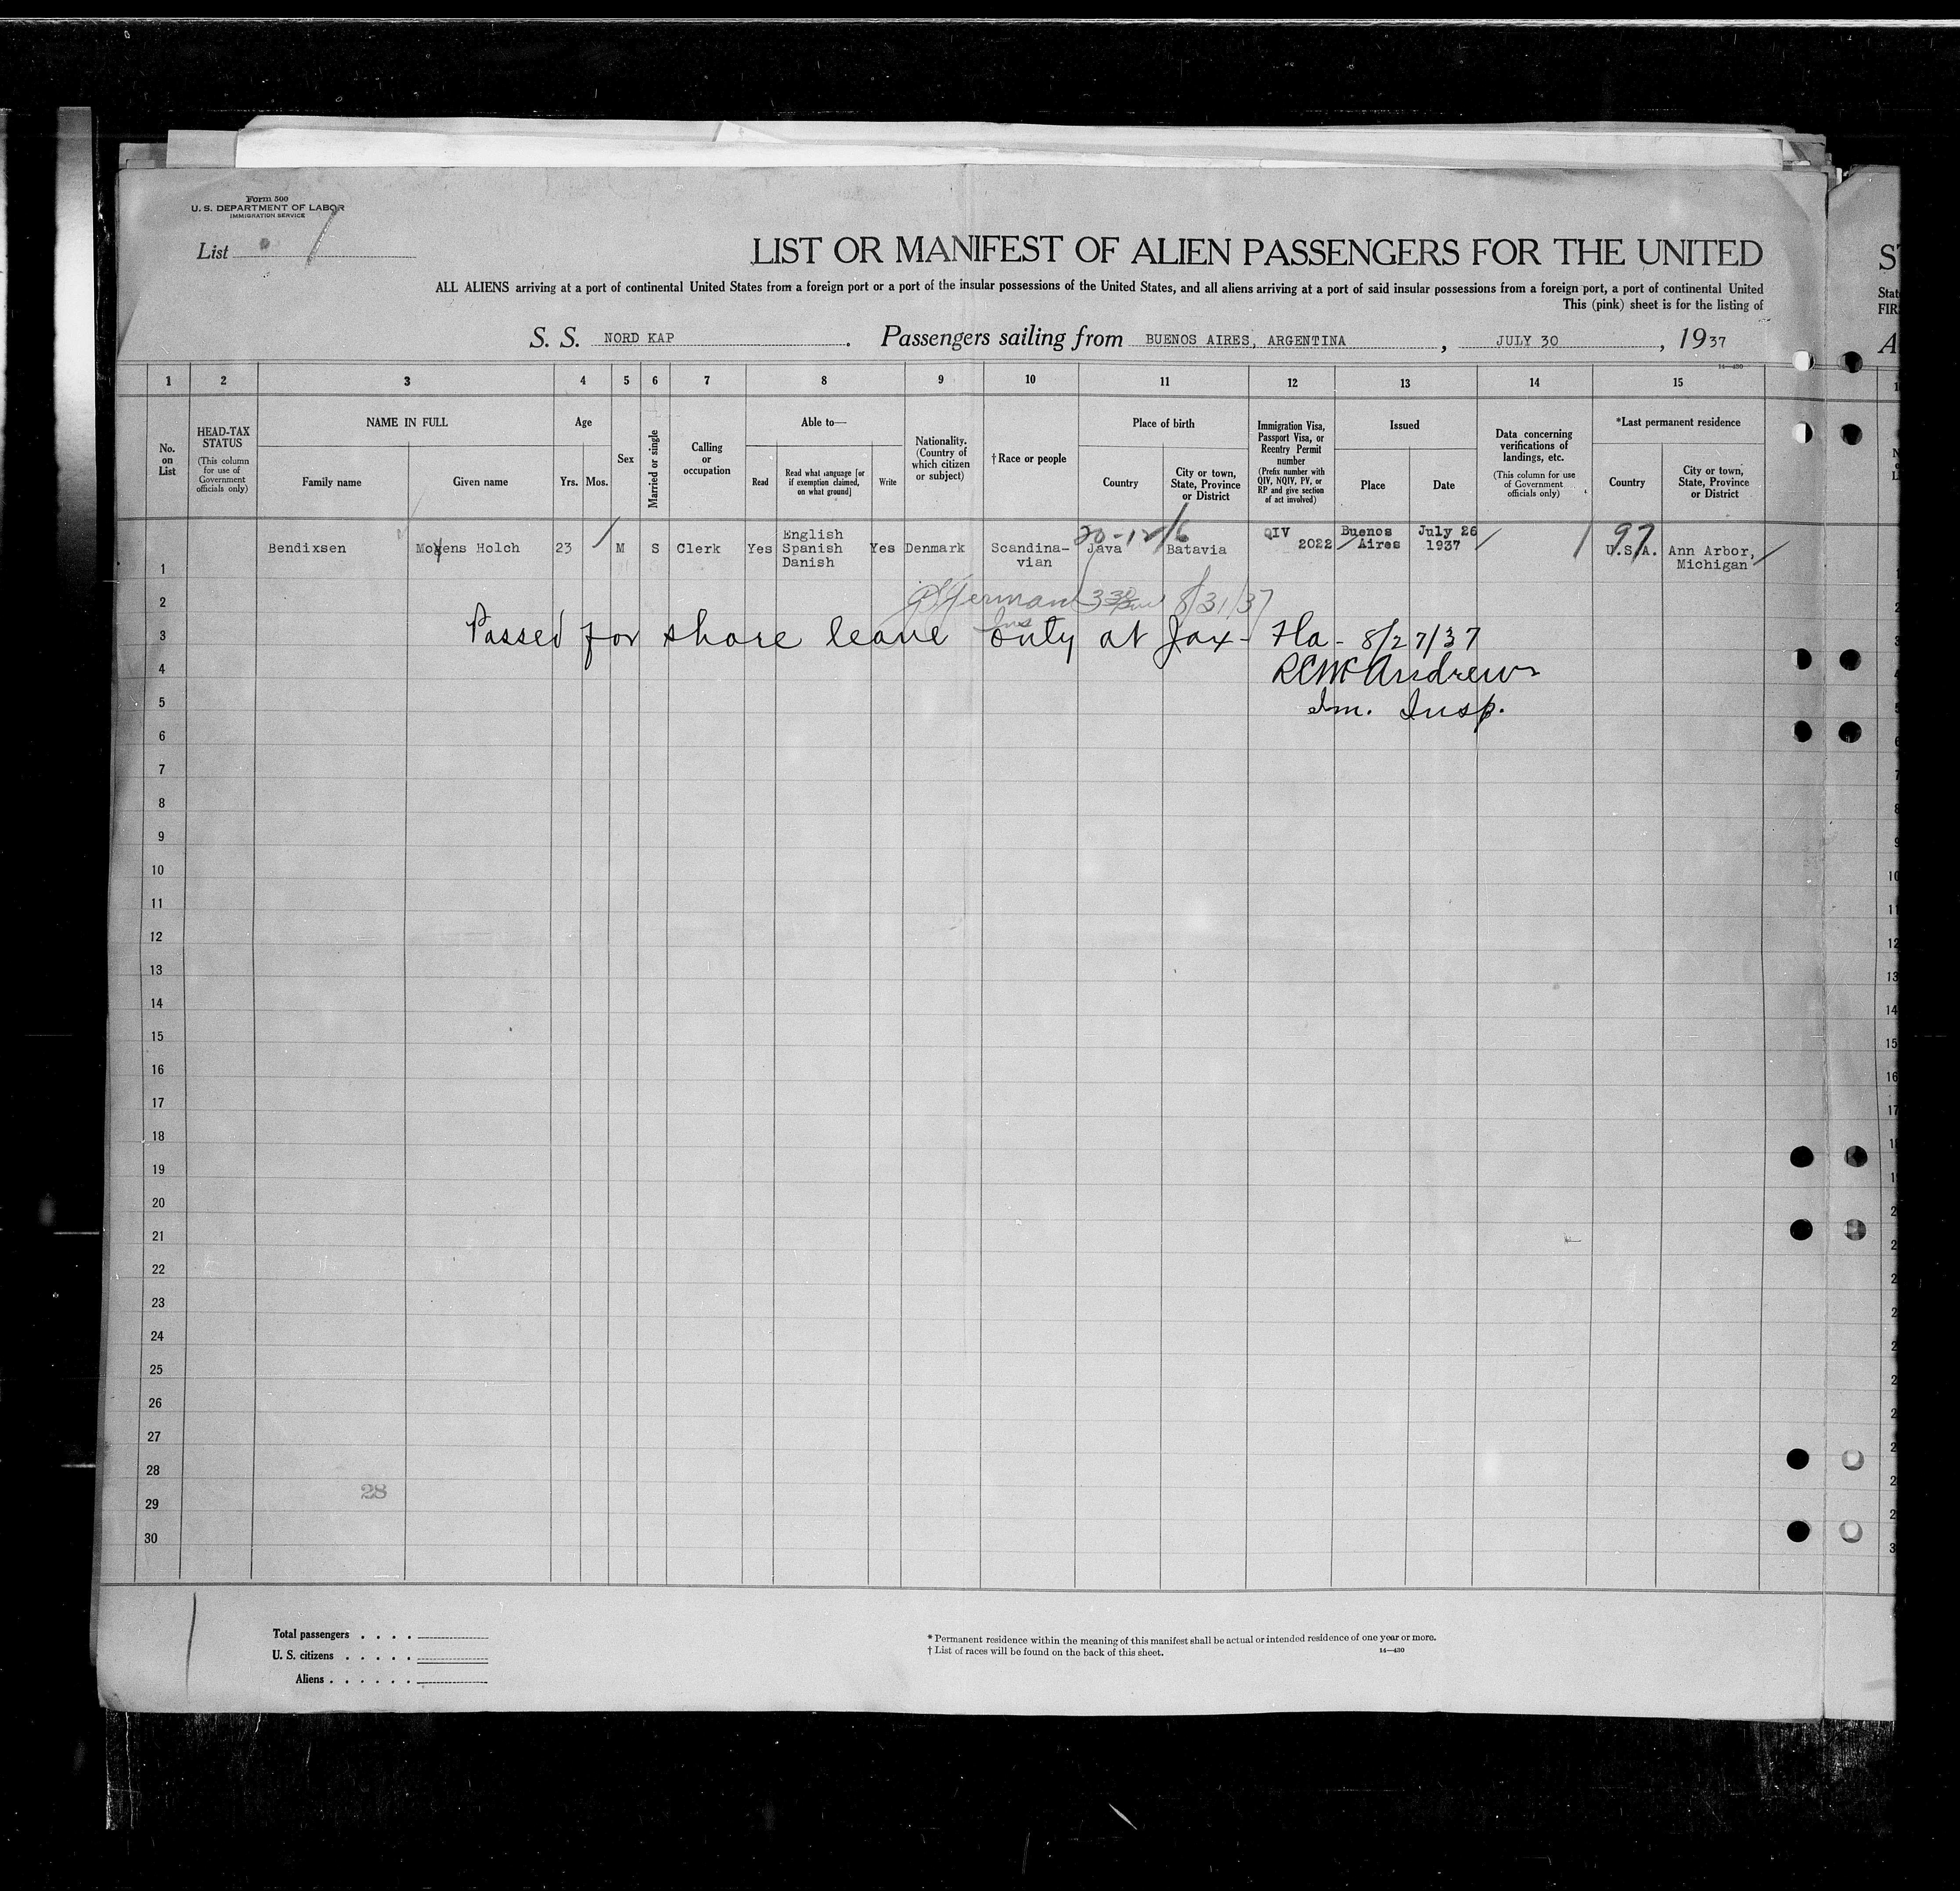 Form 500
U. S. DEPARTMENT OF LABOR
IMMIGRATION SERVICE
List
LIST OR MANIFEST OF ALIEN PASSENGERS FOR THE UNITED
ALL ALIENS arriving at a port of continental United States from a foreign port or a port of the insular possessions of the United States, and all aliens arriving at a port of said insular possessions from a foreign port, a port of continental United
This (pink) sheet is for the listing of
S. S. NORD KAP. Passengers sailing from BUENOS AIRES, ARGENTINA, JULY 30, 1937
14—430
1 2 3 4 5 6 7 8 9 10 11 12 13 14 15
No. on List
HEAD-TAX STATUS
(This column for use of Government officials only)
NAME IN FULL
Family name
Given name
Age
Yrs.
Mos.
Sex
Married or single
Calling or occupation
Able to—
Read
Read what language [or if exemption claimed, on what ground]
Write
Nationality. (Country of which citizen or subject)
† Race or people
Place of birth
Country
City or town, State, Province or District
Immigration Visa, Passport Visa, or Reentry Permit number
(Prefix number with QIV, NQIV, PV, or RP and give section of act involved)
Issued
Place
Date
Data concerning verifications of landings, etc.
(This column for use of Government officials only)
*Last permanent residence
Country
City or town, State, Province or District
20-12/6
97
1 Bendixsen Mogens Holch 23 M S Clerk Yes English Spanish Danish Yes Denmark Scandina-vian Java Batavia QIV 2022 Buenos Aires July 26 1937 U.S.A. Ann Arbor, Michigan
2 8/31/37
3 Passed for shore leave only at Jax- Fla- 8/27/37
4 RCMcAndrews
5 Im. Insp.
6
7
8
9
10
11
12
13
14
15
16
17
18
19
20
21
22
23
24
25
26
27
28
28
29
30
Total passengers . . . .
U. S. citizens . . . . .
Aliens . . . . . .
* Permanent residence within the meaning of this manifest shall be actual or intended residence of one year or more.
† List of races will be found on the back of this sheet.
14—430